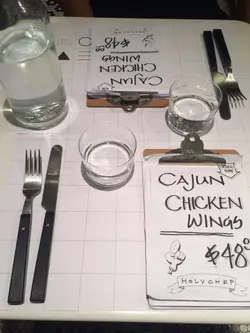 CAJUN
CHICKEN
WINGS
$48
CAJUN
CHICKEN
WINGS
$48
HOLYCHEF